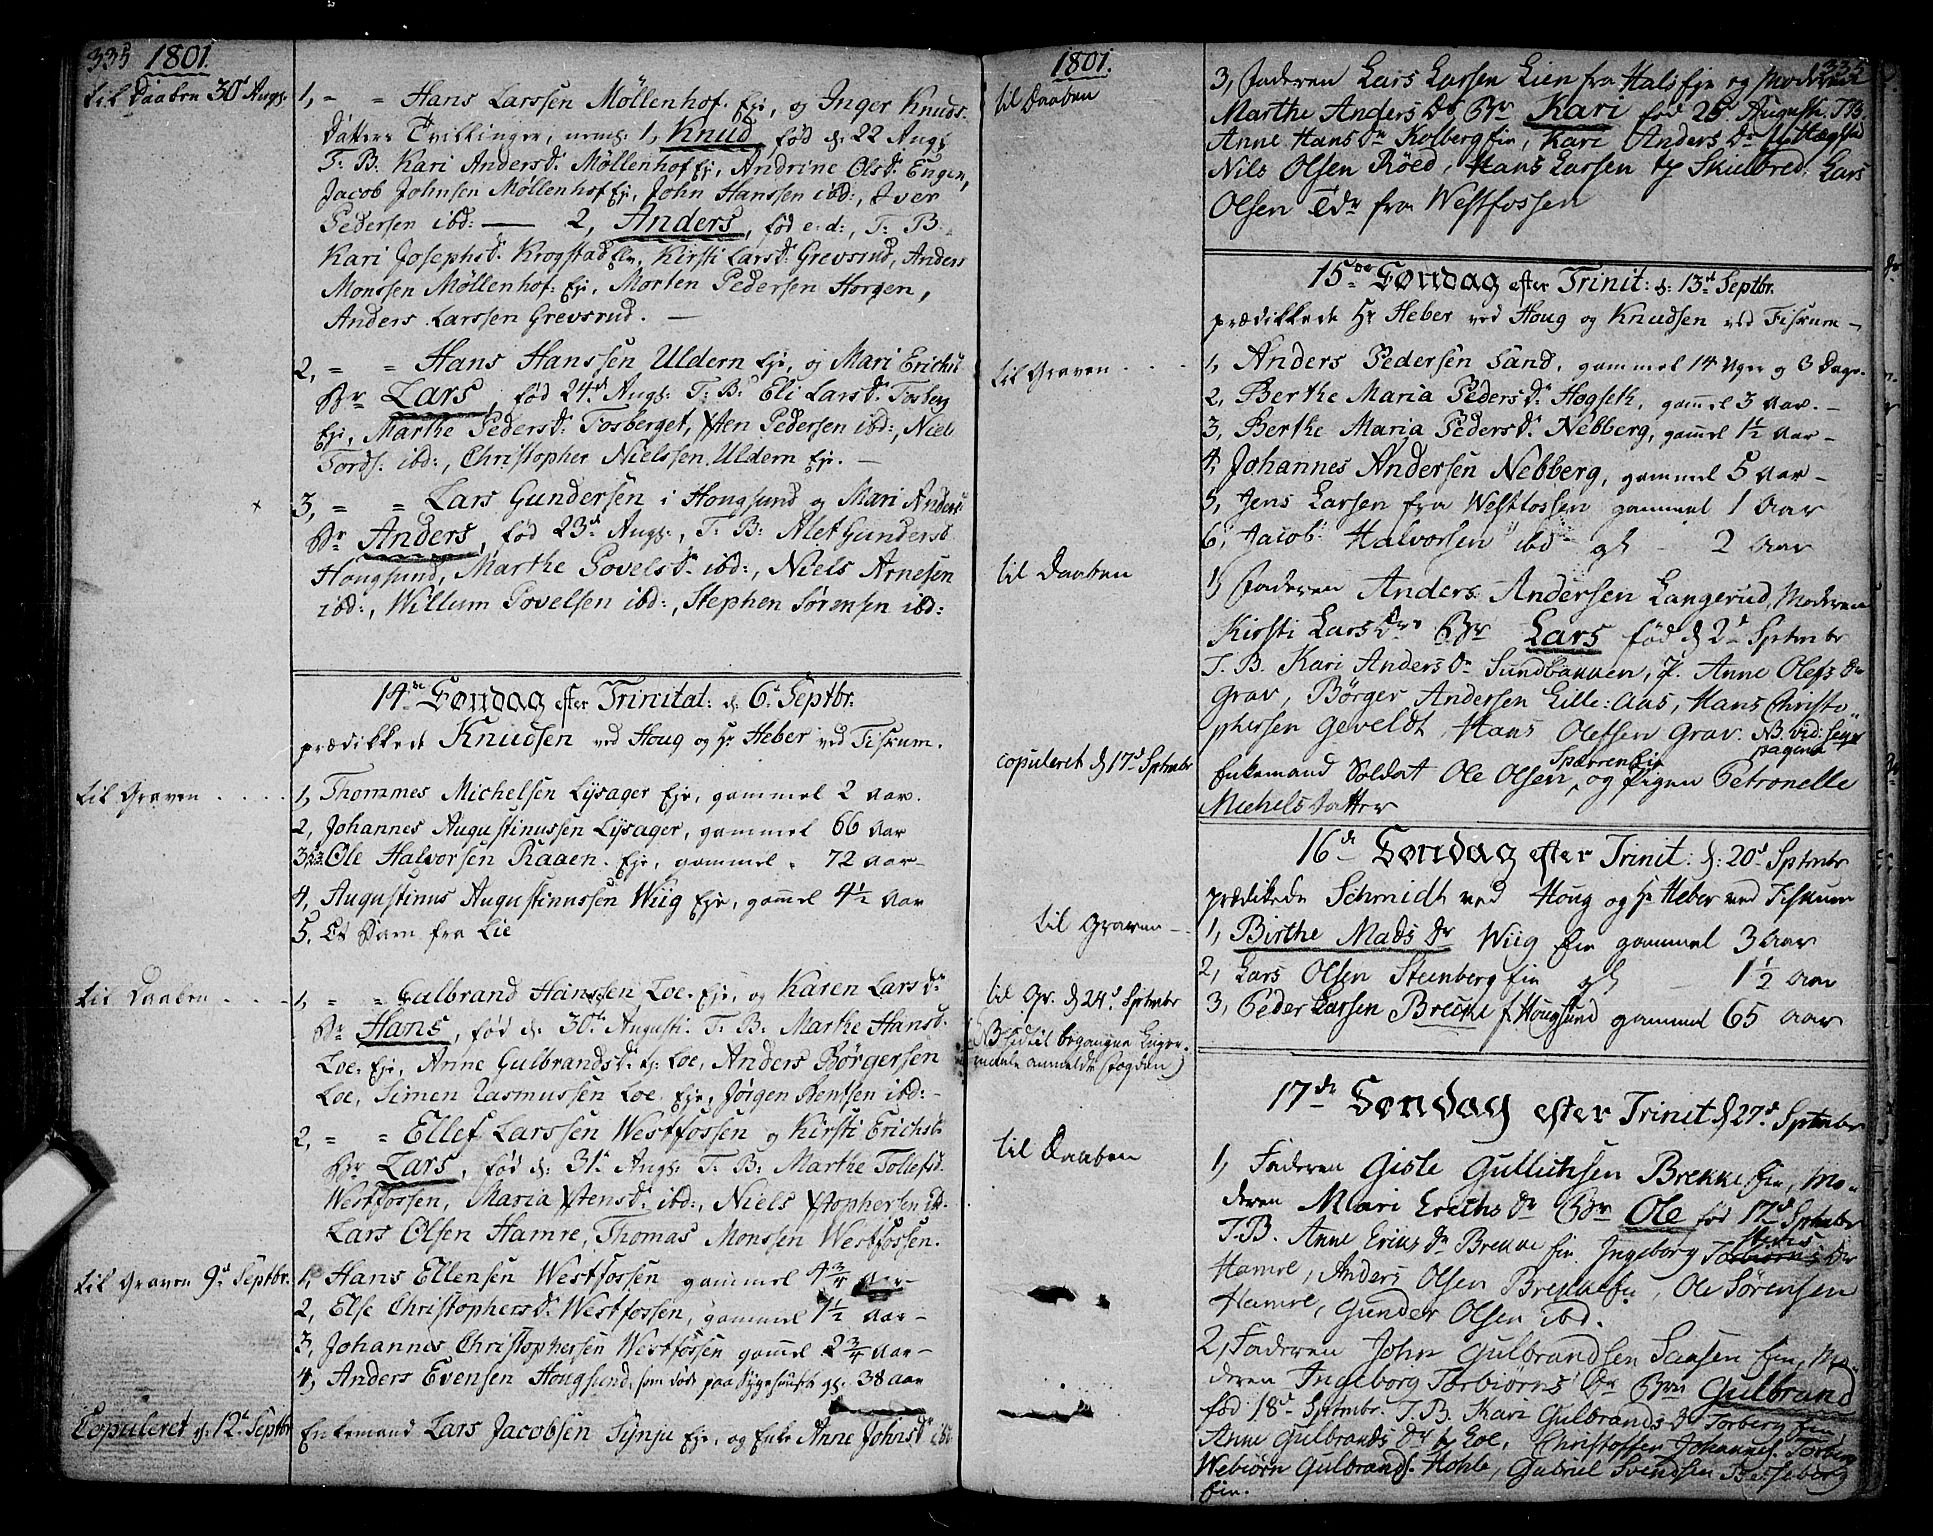 335 1801.
til Daaben 30t Augs.
1, " " Hans Larssen Möllenhof. Eje, og Inger Knuds-
Datters Tvillinger, neml: 1, Knud, fød d: 22 Augs
T. B. Kari Andersd: Möllenhof Eje, Andrine Olsd: Engen,
Jacob Johnsen Möllenhof Eje, John Hanssen ibd:, Iver
Pedersen ibd: — 2, Anders, fød e: d:, T: B.
Kari Josephsd: Krogstad Elv, Kirsti Larsd: Grevsrud, Anders
Monssen Möllenhof: Eje, Morten Pedersen Horgen,
Anders Larssen Grevsrud. —
2, " " Hans Hanssen Uldern Eje, og Mari Erichsd
Br Lars, fød 24de Augs: T: B: Eli Larsd: Fosberg
Eje, Marthe Pedersd: Fosberget, Sten Pedersen ibd:, Niels
Tords: ibd:, Christopher Nielssen Uldern Eje. —
3, " " Lars Gundersen i Hougsund og Mari Anders
Br Anders, fød 23de Augs:, T: B: Alet Gundersd
Hougsund, Marthe Povelsd: ibd:, Niels Arnesen
ibd:, Willum Povelsen ibd:, Stephen Sörensen ibd:
14de Søndag efter Trinitat: d: 6t Septbr:
prædikkede Knudsen ved Houg og Hr Heber ved Fiskum.
til Graven . . . . .
1, Thommes Michelsen Lysager Eje, gammel 2 Aar.
2, Johannes Augustinussen Lysager, gammel 66 Aar
3, Ole Halvorsen Raaen. Eje, gammel. 72 Aar—
4, Augustinus Augustinussen Wiig Eje, gammel 4 1/2 Aar
5. Et Barn fra Lie
til Daaben . . . .
1, " " Gulbrand Hanssen Loe. Eje, og Karen Larsdr
Br Hans, fød d: 30te Augusti. T. B. Marthe Hansd.
Loe. Eje, Anne Gulbrandsd: Loe, Anders Börgersen
Loe, Simen Rasmussen Loe Eje, Jörgen Bentsen ibd:—
2, " " Ellef Larssen Westfossen og Kirsti Erichsd:
Br Lars, fød d: 31t Augs: T: B: Marthe Tollefsd.
Westfossen, Maria Stensd: ibd:, Niels Xstophersen ib.
Lars Olsen Hamre, Thomas Monssen Westfossen.
til Graven 9de Septbr.
1, Hans Ellensen Westfossen gammel 4 3/4 Aar—
2, Else Christophersd: Westfossen, gammel 1 1/2 Aar—
3, Johannes Christophersen Westfossen gammel 2 3/4 Aar—
4, Anders Evensen Hougsund, som døde paa Sygehuuset gl: 38 aar
Copuleret d: 12te Septbr
Enkemand Lars Jacobsen Synju Eje, og Enke Anne Johnsdr ibd
1801. 335
til Daaben
3, Faderen Lars Larsen Lien fra Hals Eje og Moderen
Marthe Anders Dr Br Kari fød 26 Augusti. T. B.
Anne Hans Dr Kolberg Eie, Kari Anders Dr
Nils Olsen Röed, Hans Larsen Skulbred, Lars
Olsen Tdr fra Westfossen
15de Søndag efter Trinit: d: 13de Septbr.
prædikkede Hr Heber ved Houg og Knudsen ved Fiskum—
til Graven . . . .
1, Anders Pedersen Sand, gammel 14 Uger og 3 Dage.
2, Berthe Maria Peders Dr Hogseth, gammel 3 Aar.—
3, Berthe Maria Peders Dr Nebberg, gammel 1 1/2 Aar—
4, Johannes Andersen Nebberg, gammel 5 Aar—
5, Jens Larsen fra Westfossen gammel 1 Aar
6, Jacob Halvorsen ibd— gl — 2 Aar
til Daaben
1, Faderen Anders Andersen Langerud, Moderen
Kirsti Lars Dtr Br Lars fød d 2d Sptmbr
T. B. Kari Anders Dr Sundbakken, P. Anne Olefs Dr
Grav, Börger Andersen Lille: Aas, Hans Christo-
phersen Geveldt, Hans Olefsen Grav. NB. vid: seqv
pagina
copuleret d 17de Sptmbr
Enkemand Soldat Ole Olsen Spærren Eie, og Pigen Petronelle
Michels Datter
16de Søndag efter Trinit: d: 20d Sptmbr
prædikede Schmidt ved Houg og Hr Heber ved Fiskum
til Graven—
1, Birthe Mads Dr Wiig Eie gammel 3 Aar
2, Lars Olsen Steenberg Eie gl — 1 1/2 Aar
til Gr. d 24d Sptmbr
3, Peder Larsen Brecke f Hougsund gammel 65 aar
17de Søndag efter Trinit d 27de Sptmbr
til Daaben
1, Faderen Gisle Gullichsen Brekke Eie, Mo-
deren Mari Erichs Dr Br Ole fød 17de Sptmbr
T. B. Anne Erichs Dr Brekke Eie, Ingeborg Torbiörns Dr
Hamre, Anders Olsen Brekke Eie, Ole Sörensen
Hamre, Gunder Olsen ibd.
2, Faderen John Gulbrandsen Saasen Eie, Mo-
deren Ingeborg Torbiörns Dr Br Gulbrand
fød 18d Sptmbr. T. B. Kari Gulbrands Dr Torberg Eie
Anne Gulbrands Dr Loe, Christoffer Johannes: Torberg
Webiörn Gulbrands: Hohle, Gabriel Svendsen Betzeberg
Eie.